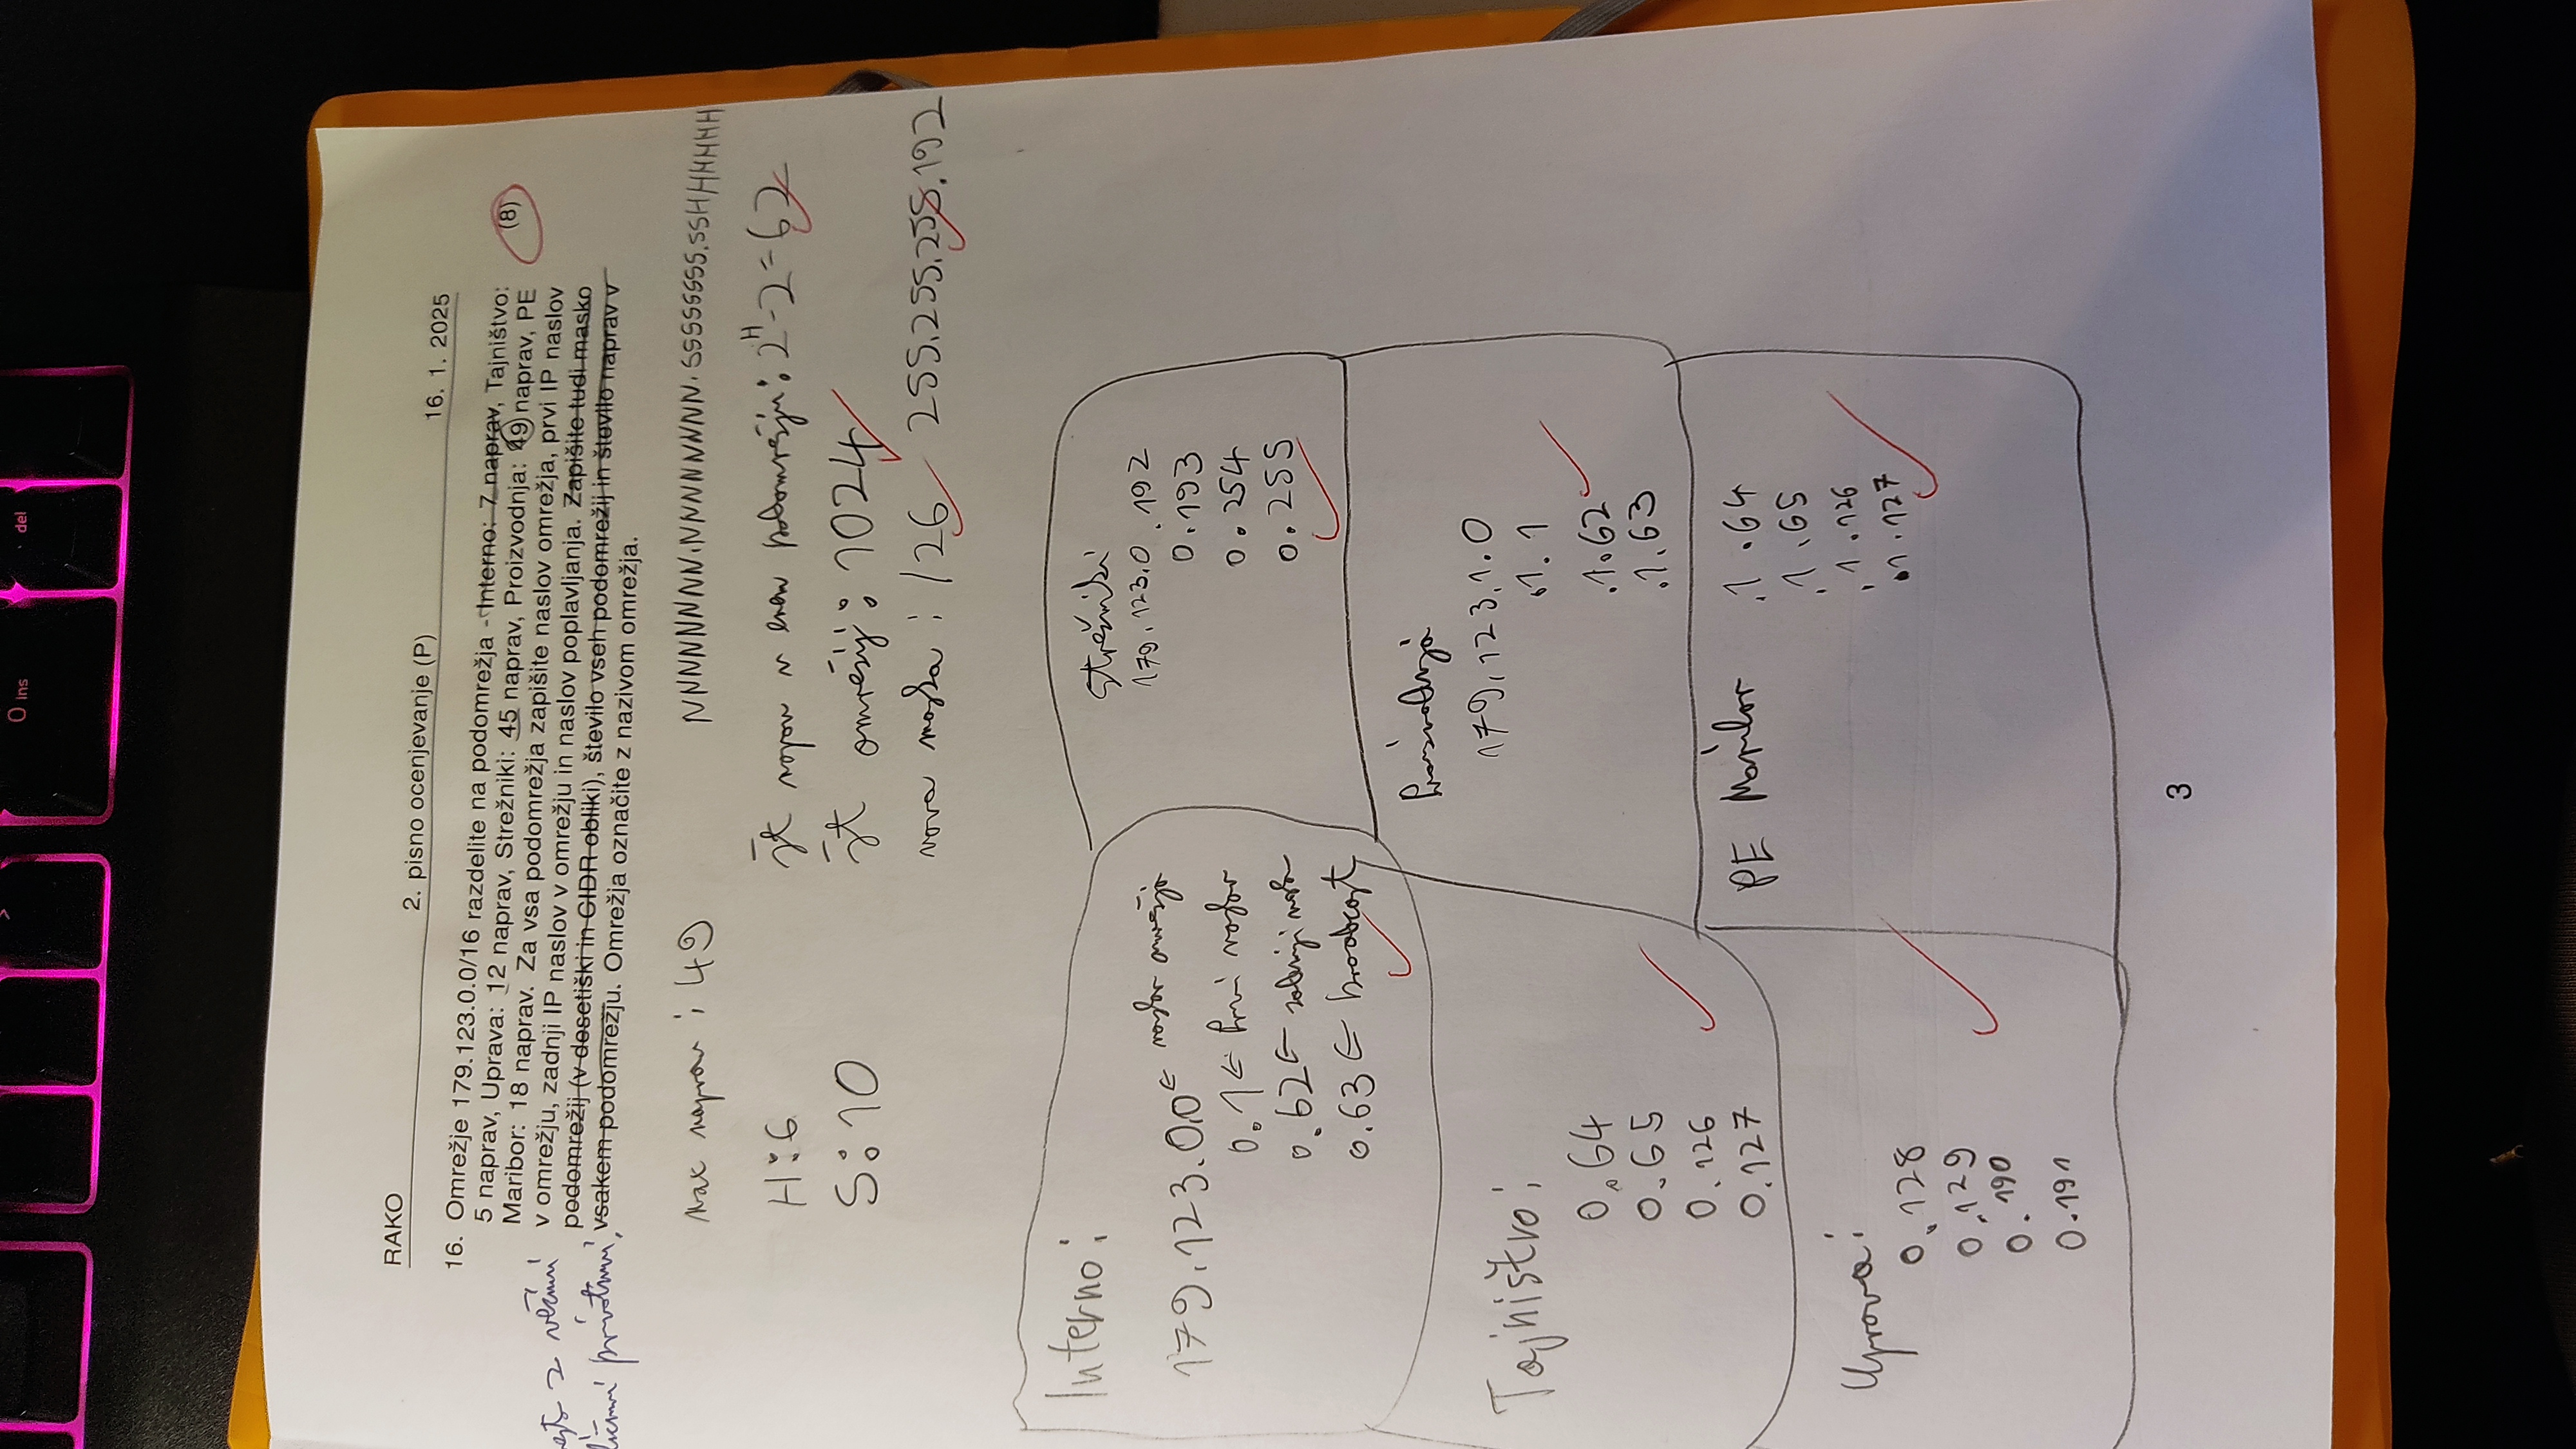 0 ins
del
RAKO
2. pisno ocenjevanje (P)
16. 1. 2025
16. Omrežje 179.123.0.0/16 razdelite na podomrežja - Interno: 7 naprav, Tajništvo:
5 naprav, Uprava: 12 naprav, Strežniki: 45 naprav, Proizvodnja: 49 naprav, PE
Maribor: 18 naprav. Za vsa podomrežja zapišite naslov omrežja, prvi IP naslov
v omrežju, zadnji IP naslov v omrežju in naslov poplavljanja. Zapišite tudi masko
podomrežij (v desetiški in CIDR obliki), število vseh podomrežij in število naprav v
vsakem podomrežju. Omrežja označite z nazivom omrežja.
(8)
z večimi
max naprav : 49
NNNNNNNN.NNNNNNNN.SSSSSSSS.SSHHHHHH
H:6
št naprav v enem podomrežju: 2^H-2=62
S:10
št omrežij: 1024
nova maska : /26 255.255.255.192
Interno:
179.123.0.0 ← naslov omrežja
0.1 ← prvi naslov
0.62 ← zadnji naslov
0.63 ← broadcast
Strežniki
179.123.0.192
0.193
0.254
0.255
Tajništvo:
0.64
0.65
0.126
0.127
Proizvodnja
179.123.1.0
.1.1
.1.62
.1.63
Uprava:
0.128
0.129
0.190
0.191
PE Maribor .1.64
.1.65
.1.126
.1.127
3